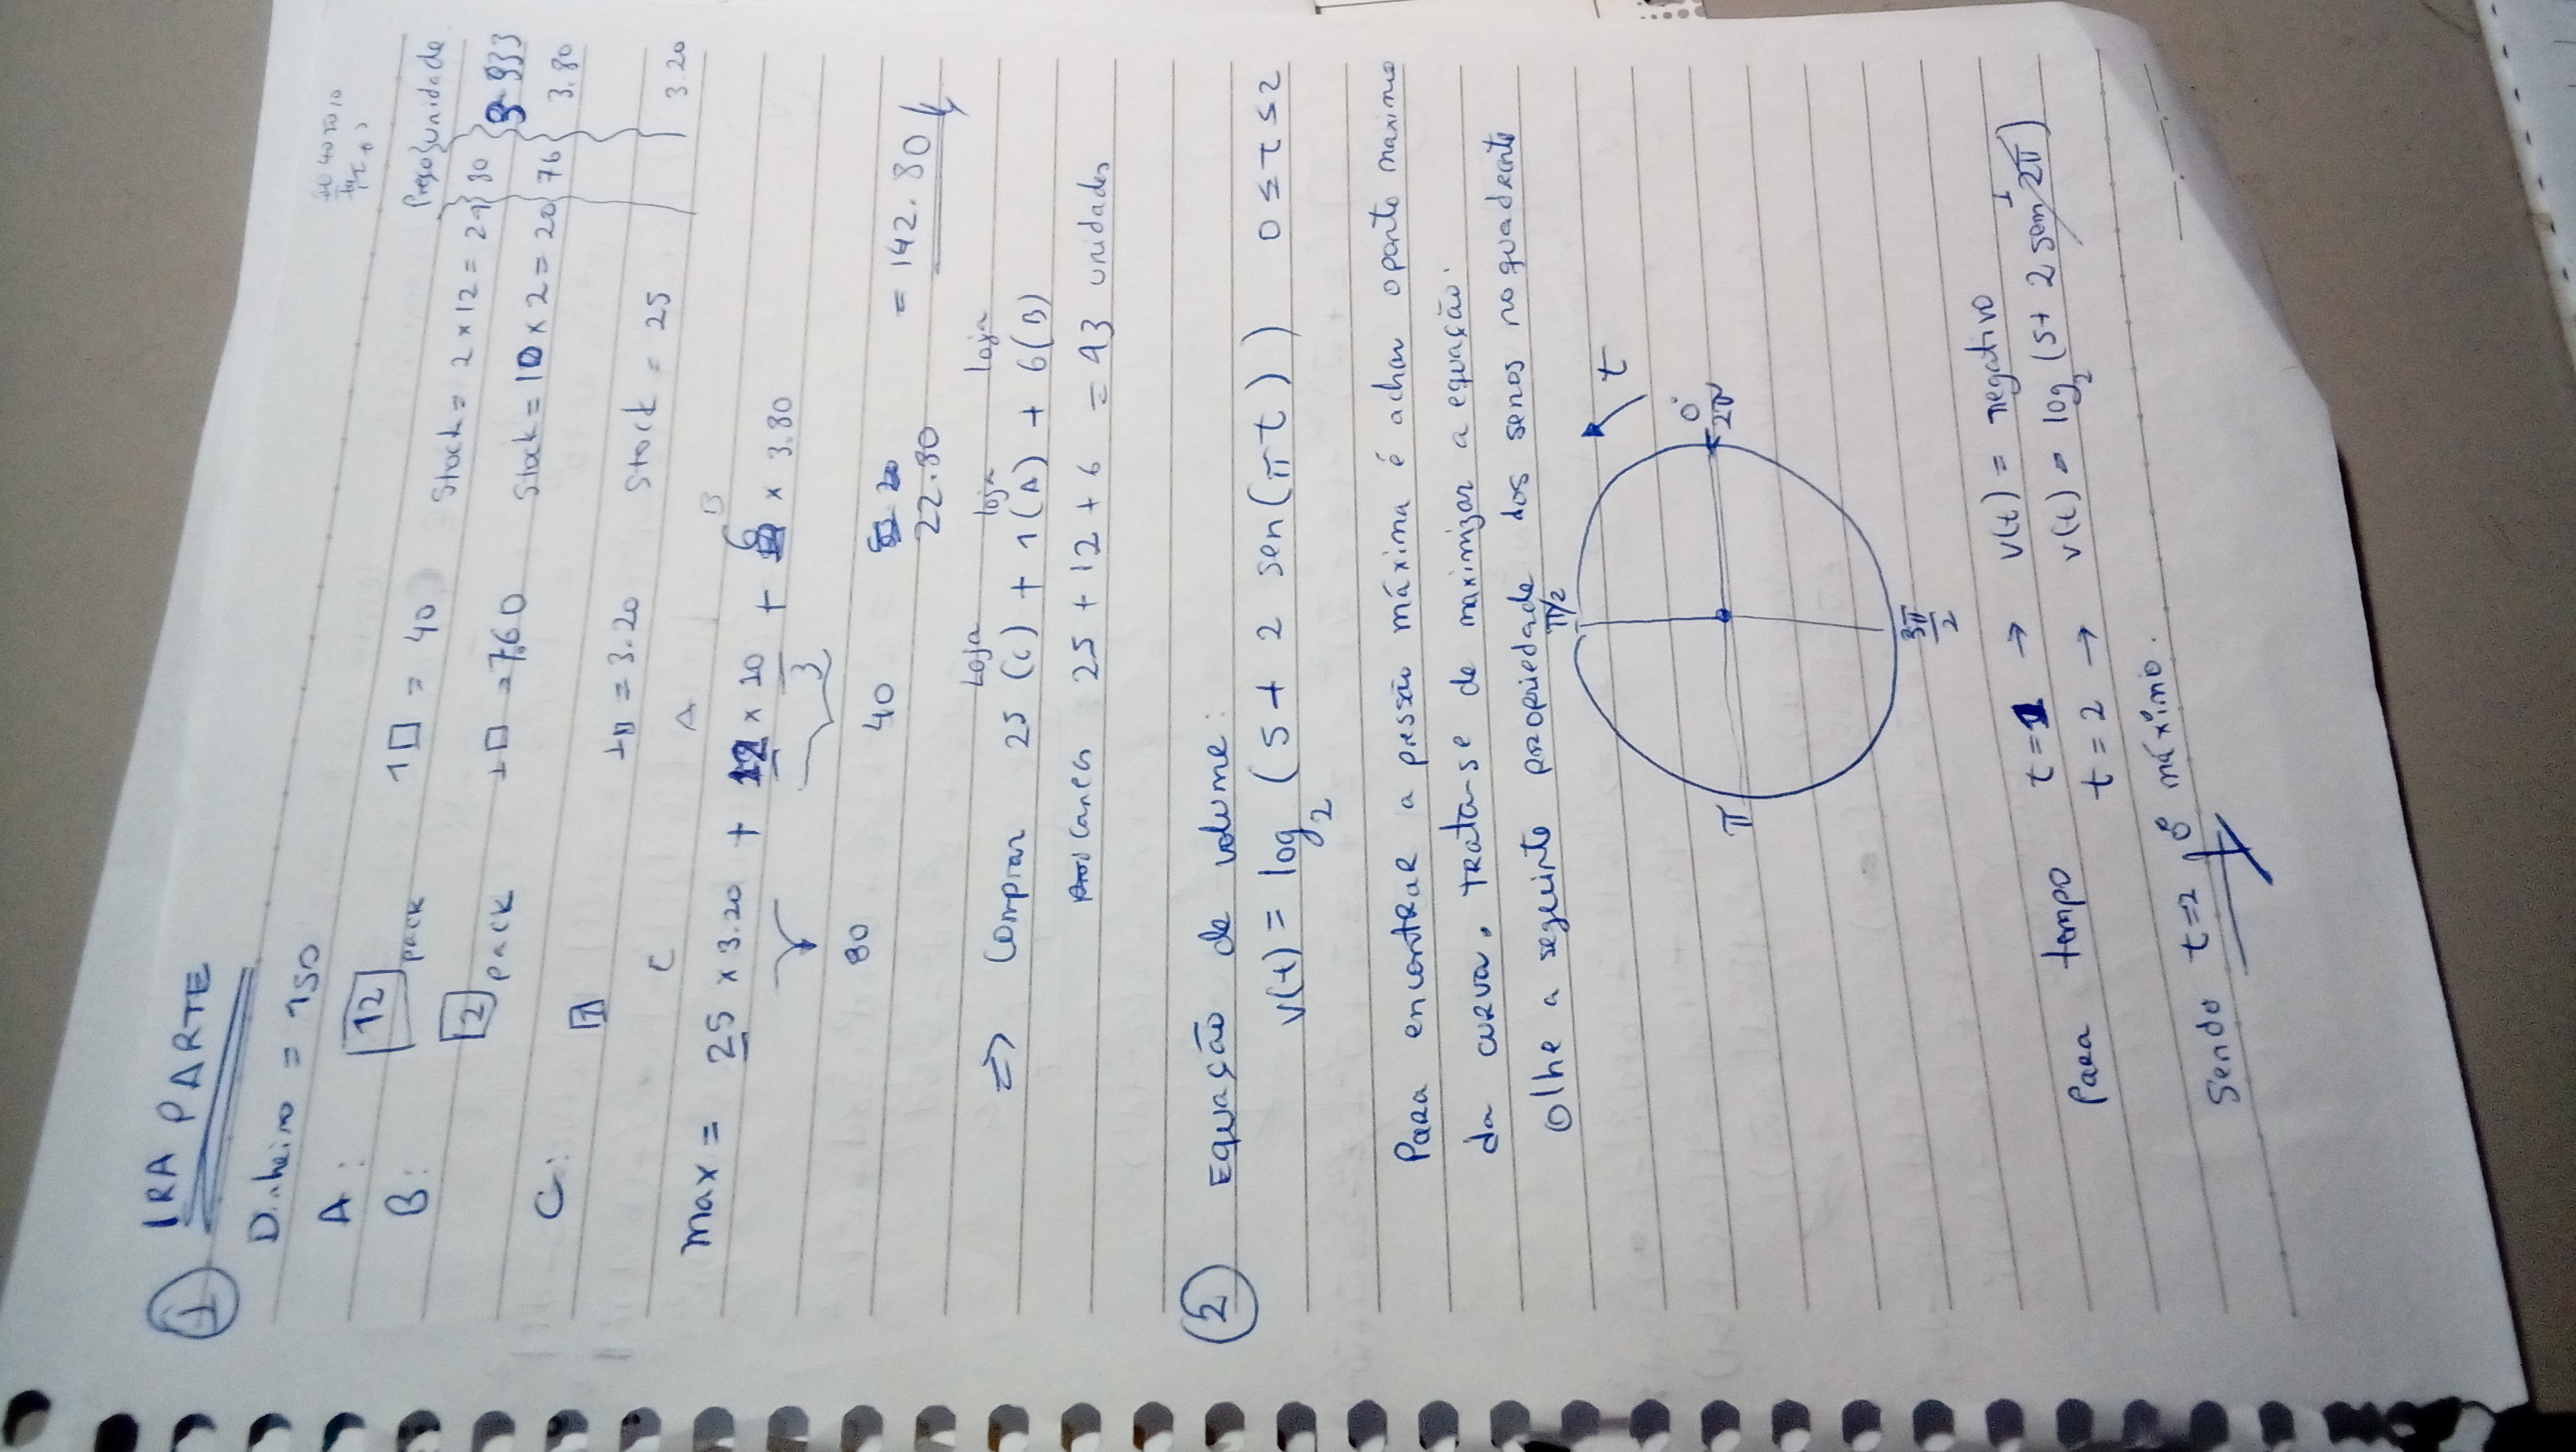 ① 1RA PARTE
Dinheiro = 150
Preço unidade
A: 12 pack 1□ = 40 Stock = 2 x 12 = 24 80
B: 2 pack 1□ = 7.60 Stock = 10 x 2 = 20 76 3.80
C: 1 1□ = 3.20 Stock = 25 3.20
C A B
Max = 25 x 3.20 + 12 x 10/3 + 6 x 3.80
80 40 22.80 = 142.80
Loja loja loja
=> Comprar 25 (C) + 1 (A) + 6 (B)
25 + 12 + 6 = 43 unidades
② Equação de volume:
V(t) = log₂ (5 + 2 sen(πt)) 0 ≤ t ≤ 2
Para encontrar a pressão máxima é achar o ponto maximo
da curva, trata-se de maximizar a equação.
Olhe a seguinte propriedade dos senos no quadrante
π/2
t
π 0° 2π
3π/2
Para tempo t = 1 → V(t) = negativo
t = 2 → V(t) = log₂ (5 + 2 sen 2π) 1
Sendo t = 2 o máximo.